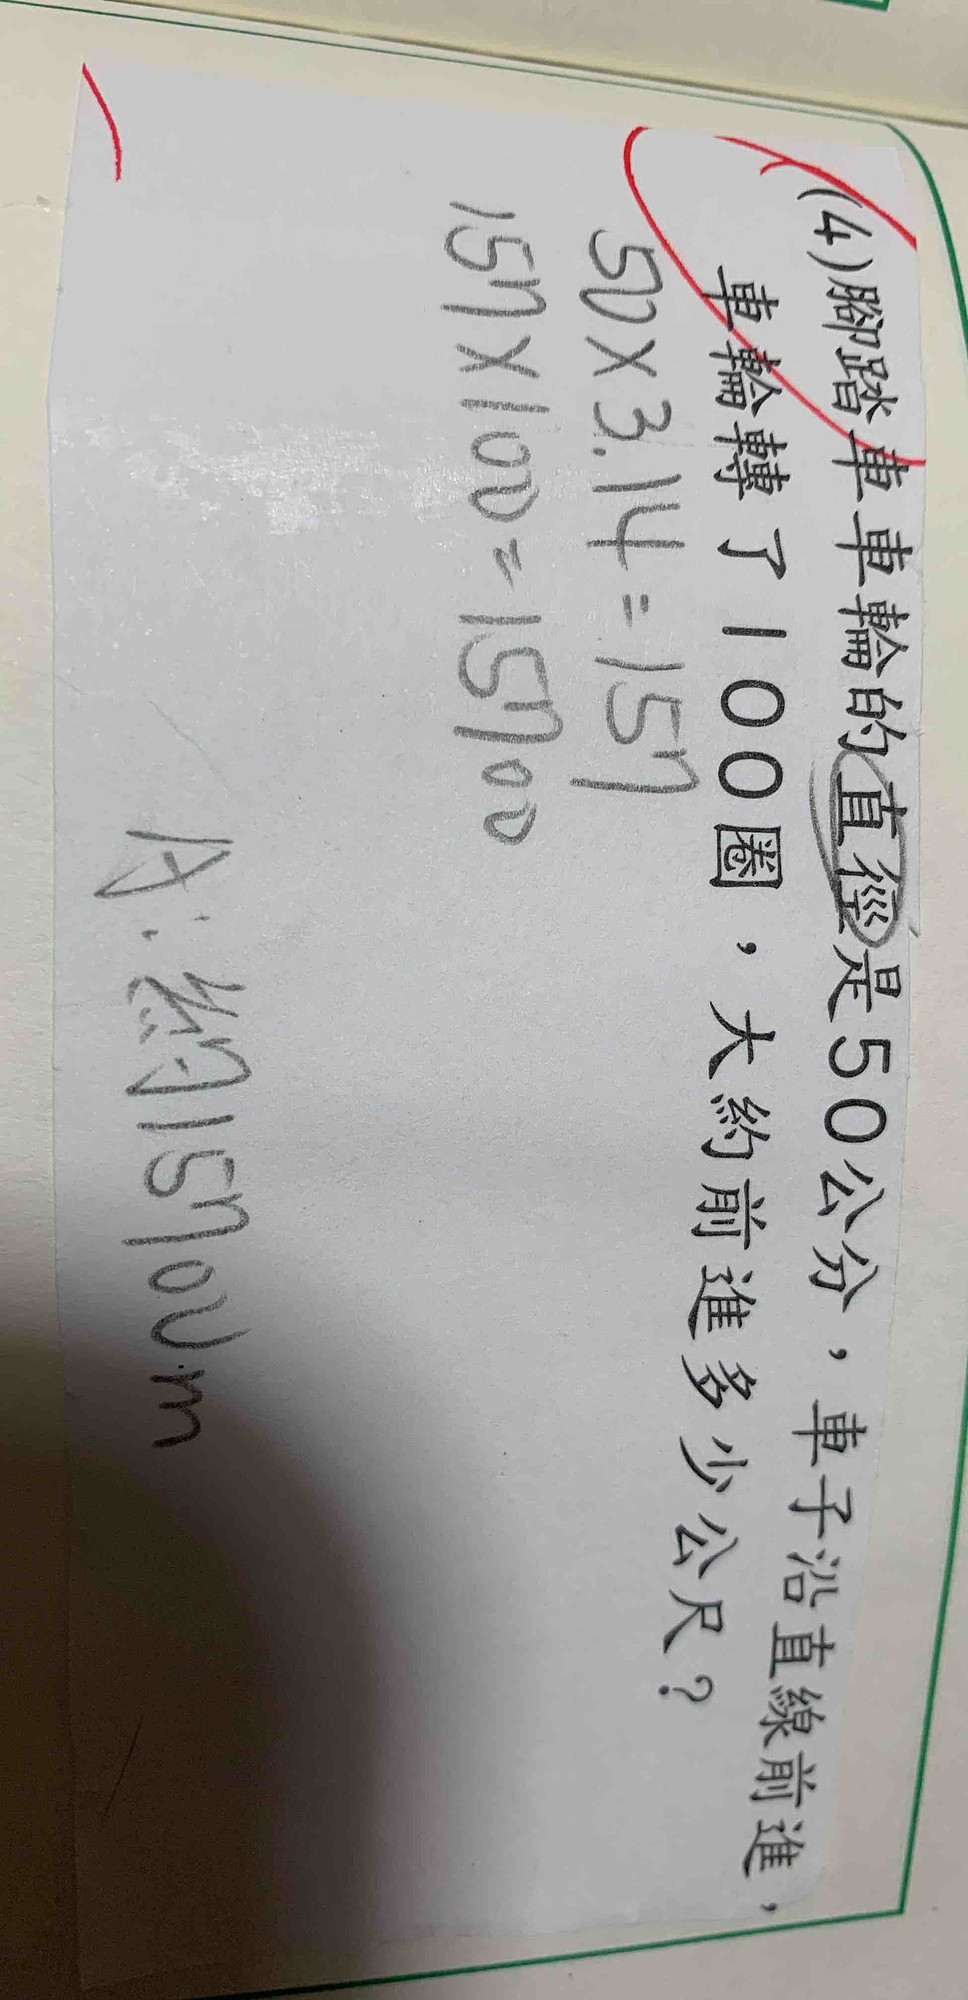 (4)腳踏車車輪的直徑是50公分，車子沿直線前進，
車輪轉了100圈，大約前進多少公尺？
50×3.14=157
157×100=15700
A:約15700m